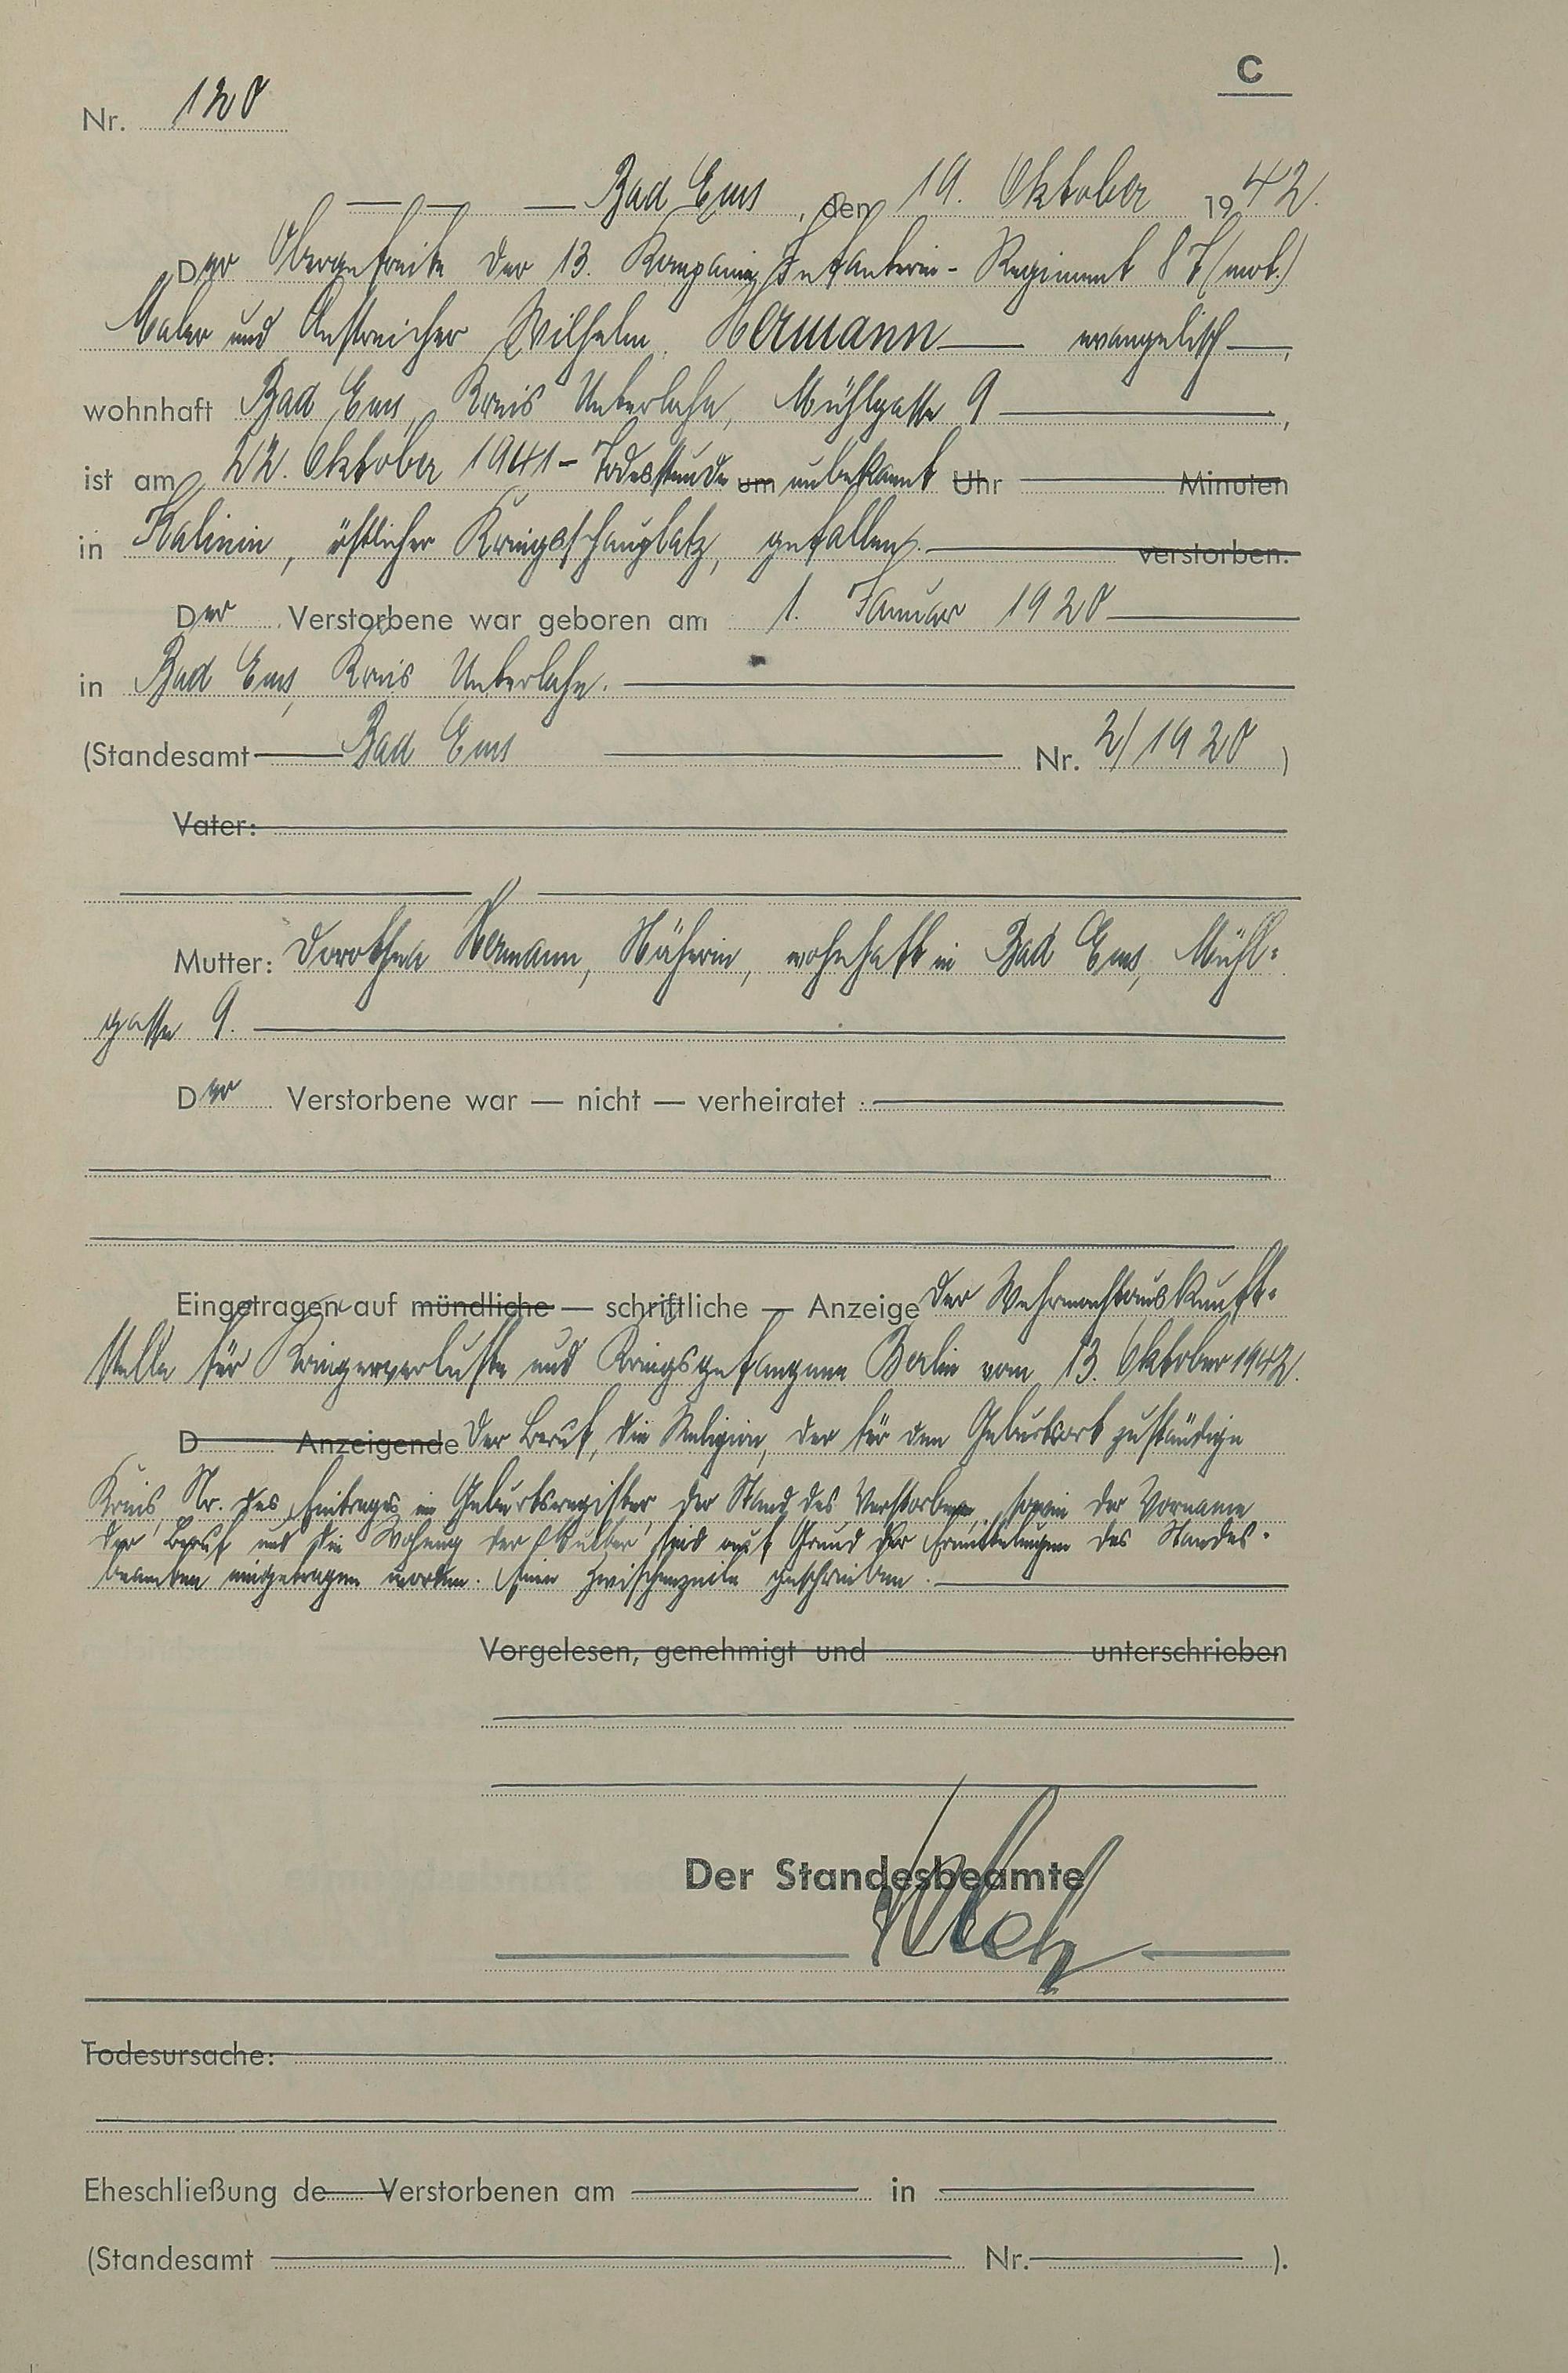 C
Nr. 120
Bad Ems, den 19. Oktober 1942.
Der Obergefreite der 13. Kompanie, Infanterie-Regiment 87 (mot.)
Maler und Anstreicher Wilhelm Hermann evangelisch,
wohnhaft Bad Ems, Kreis Unterlahn, Mühlgasse 9,
ist am 22. Oktober 1941 - Todesstunde um unbekannt Uhr Minuten
in Kalinin, östlicher Kriegsschauplatz, gefallen. verstorben.
Der Verstorbene war geboren am 1. Januar 1920
in Bad Ems, Kreis Unterlahn.
(Standesamt Bad Ems Nr. 2/1920)
Vater:
Mutter: Dorothea Hermann, Näherin, wohnhaft in Bad Ems, Mühl=
gasse 9.
Der Verstorbene war — nicht — verheiratet
Eingetragen auf mündliche — schriftliche — Anzeige der Wehrmachtauskunft=
stelle für Kriegerverluste und Kriegsgefangene Berlin vom 13. Oktober 1942.
D Anzeigende Der Beruf, die Religion, der für den Geburtsort zuständige
Kreis, Nr. des Eintrages im Geburtsregister, der Stand des Verstorbenen, sowie der Vorname
der Beruf und die Wohnung der Mutter sind auf Grund der Ermittelungen des Standes=
beamten eingetragen worden. Eine Zwischenzeile geschrieben.
Vorgelesen, genehmigt und unterschrieben
Der Standesbeamte
Todesursache:
Eheschließung de Verstorbenen am in
(Standesamt Nr. ).